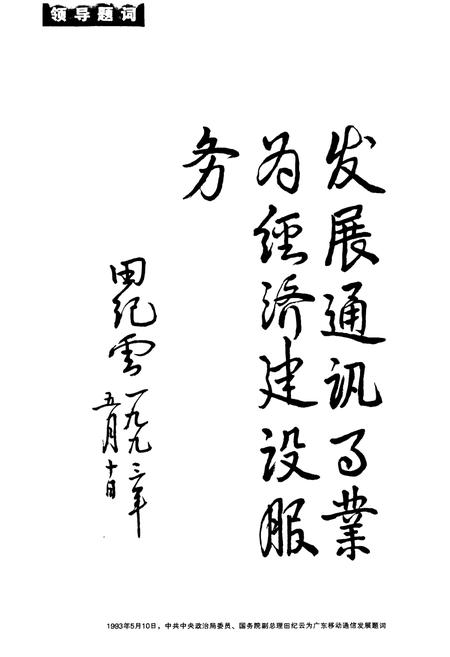 领导题词
发展通訊事業
为經济建设服
务
田纪雲一九九三年
五月十日
1993年5月10日，中共中央政治局委员、国务院副总理田纪云为广东移动通信发展题词